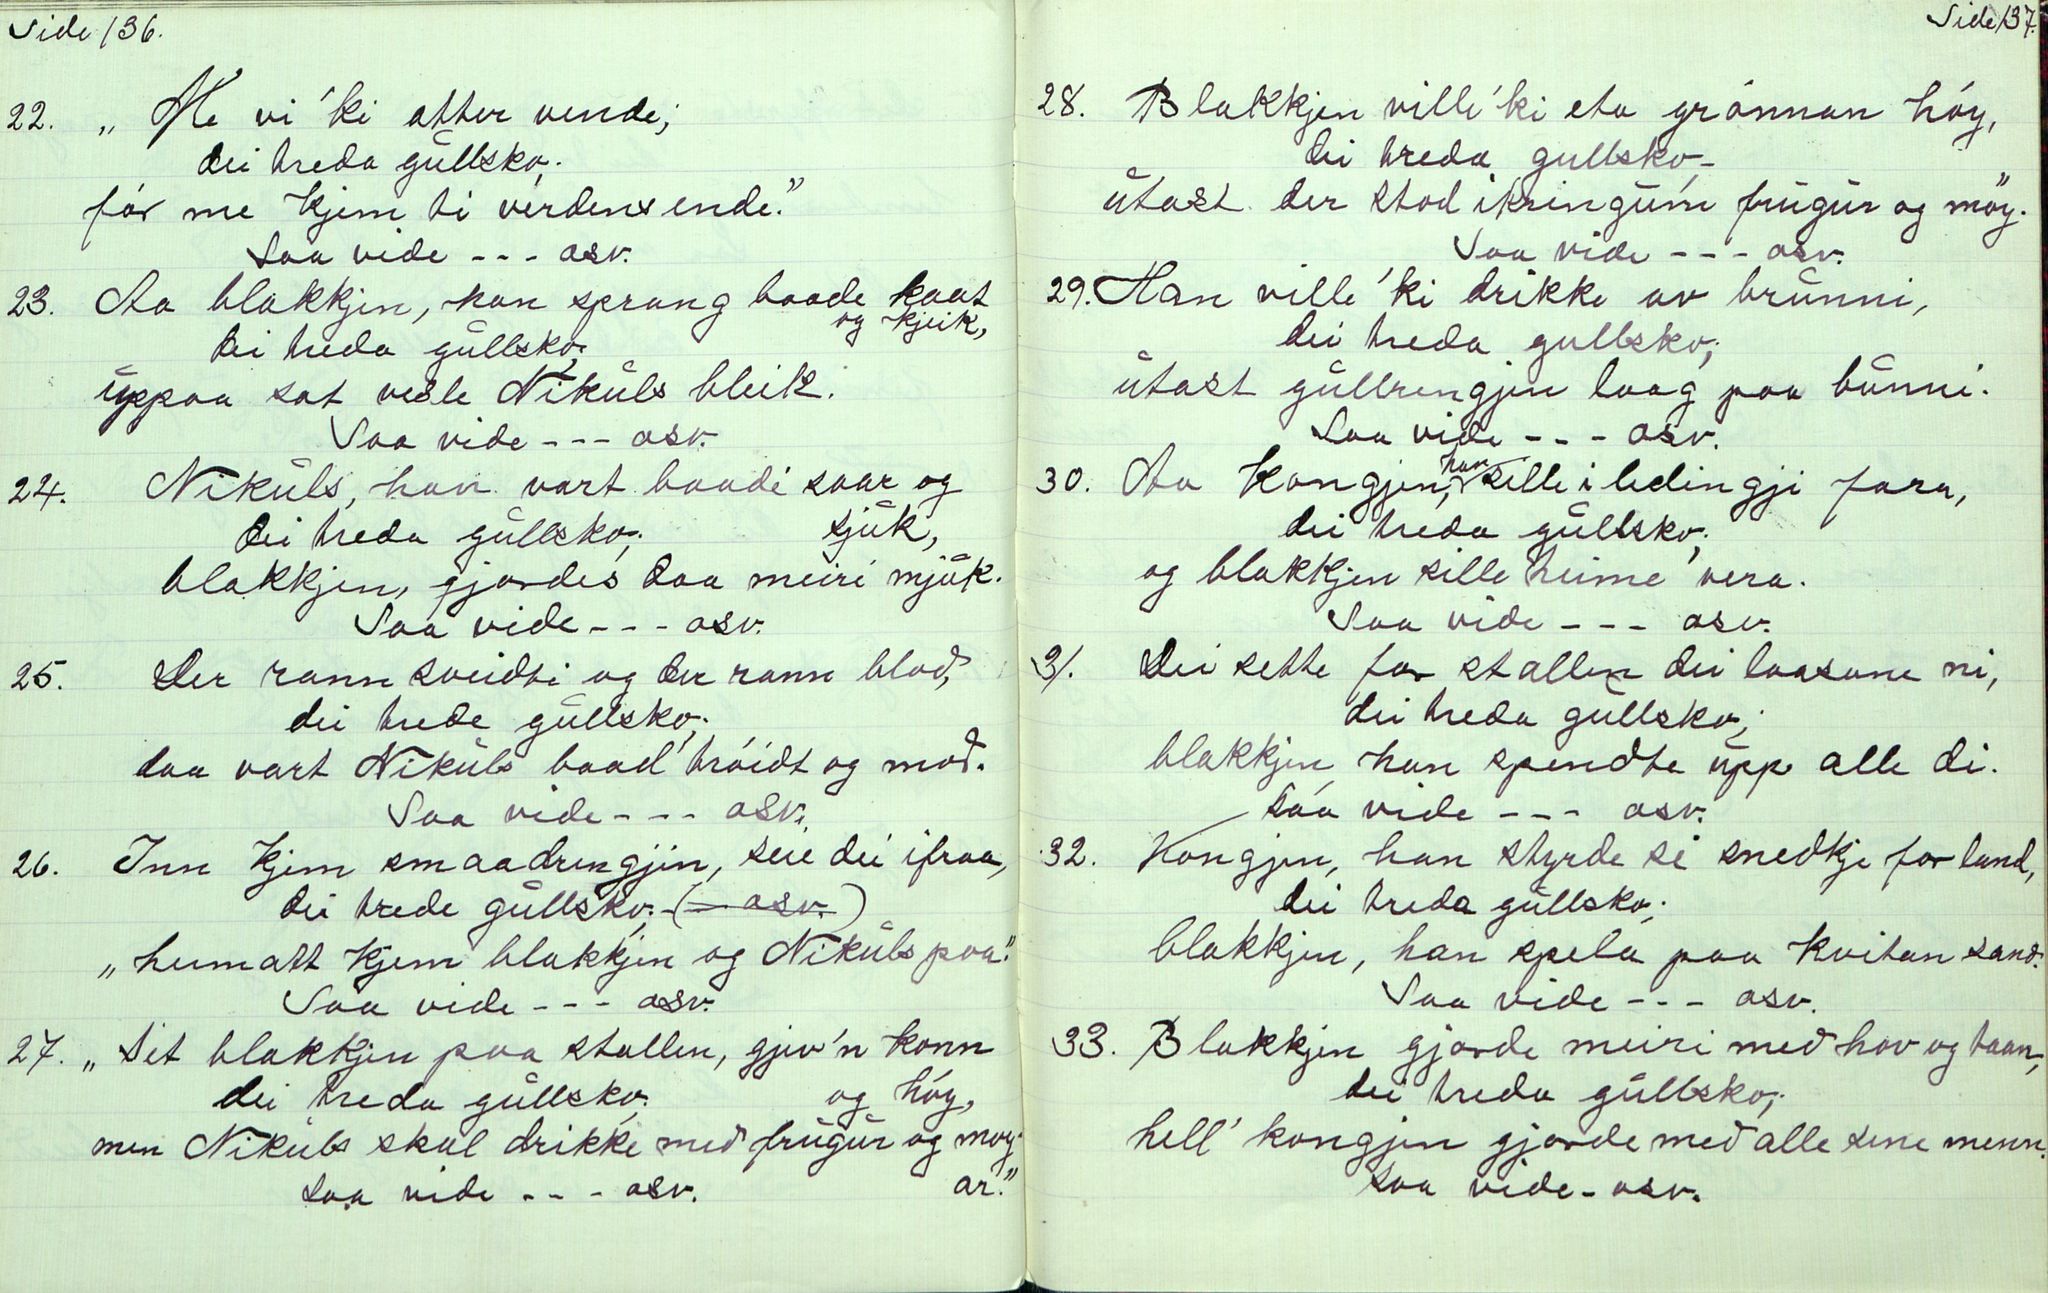 Side 136.
22. „Me vi'ki atter vende;
dei treda gŭllsko;
fór me kjem ti verdens ende."
Saa vide --- osv.
23. Aa blakkjen, han sprang baade kaat
og kjeik,
dei treda gŭllsko;
ŭppaa sat vesle Nikŭls bleik.
Saa vide --- osv.
24. Nikŭls, han vart baadi saar og
sjŭk,
dei treda gŭllsko;
blakkjen, gjordes daa meiri mjŭk.
Saa vide --- osv.
25. Der rann sveidti og der rann blod,
dei trede gŭllsko;
daa vart Nikŭls baad' tróidt og mod.
Saa vide --- osv.
26. Inn kjem smaadrengjin, seie dei ifraa,
dei trede gŭllsko; (- osv.)
„heimatt kjem blakkjen og Nikŭls paa."
Saa vide --- osv.
27. „Set blakkjen paa stallen, gjev'n konn
og hóy,
dei treda gŭllsko;
men Nikŭls skal drikke med frŭgŭr og moy-
ar."
Saa vide --- osv.
Side 137.
28. Blakkjen ville'ki eta grónnan hóy,
dei treda gullsko;
ŭtast der stod ikringŭm frŭgŭr og móy.
Saa vide --- osv.
29. Han ville'ki drikke av brŭnni,
dei treda gullsko;
ŭtast gŭllrengjen laag paa bŭnni.
Saa vide --- osv.
30. Aa kongjen, han sille i ledingji fara,
dei treda gŭllsko;
og blakkjen sille heime vera.
Saa vide --- osv.
31. Dei sette for stallen dei laasane ni,
dei treda gŭllsko;
blakkjen han spendte ŭpp alle di.
Saa vide --- osv.
32. Kongjen, han styrde sé snedkje for land,
dei treda gŭllsko;
blakkjen, han spela paa kvitan sand.
Saa vide --- osv.
33. Blakkjen gjorde meiri med hov og taan,
dei treda gŭllsko;
hell' kongjen gjorde med alle sene menn.
Saa vide - osv.